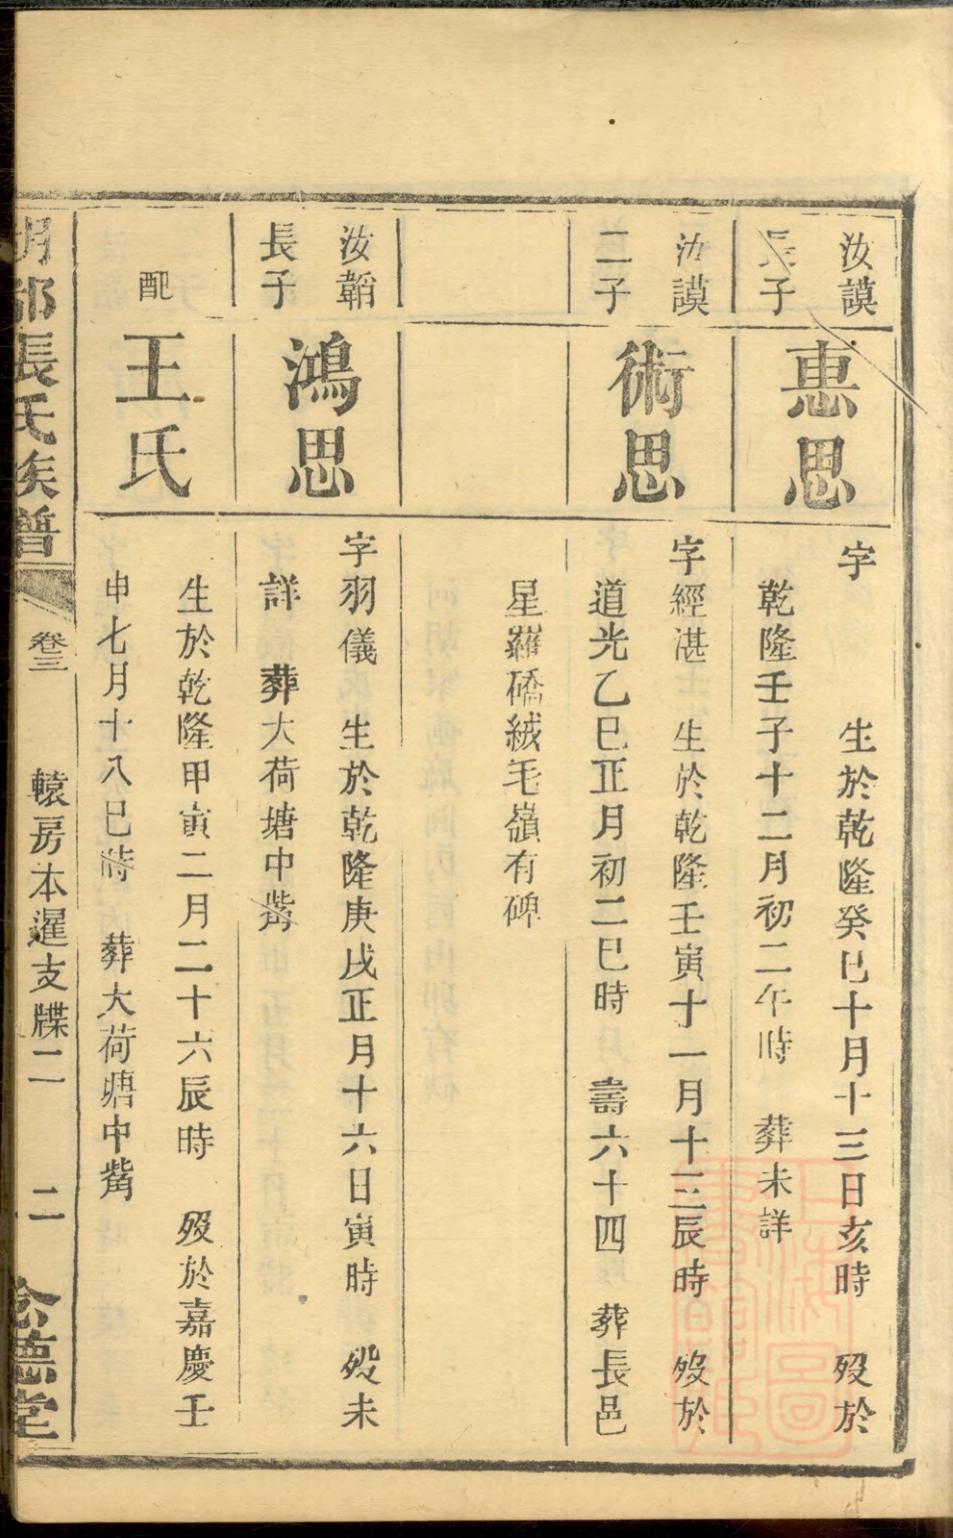 汝謨
長子
惠思
字　生於乾隆癸巳十月十三日亥時　歿於
乾隆壬子十二月初二午時　葬未詳
汝謨
二子
術思
字經湛　生於乾隆壬寅十一月十三辰時　歿於
道光乙巳正月初二巳時　壽六十四　葬長邑
星羅礄絨毛嶺有碑
汝韜
長子
鴻思
字羽儀　生於乾隆庚戌正月十六日寅時　歿未
詳　葬大荷塘中觜
配
王氏
生於乾隆甲寅二月二十六辰時　歿於嘉慶壬
申七月十八巳時　葬大荷塘中觜
張氏族譜
卷三
轅房本暹支牒二
二
念德堂